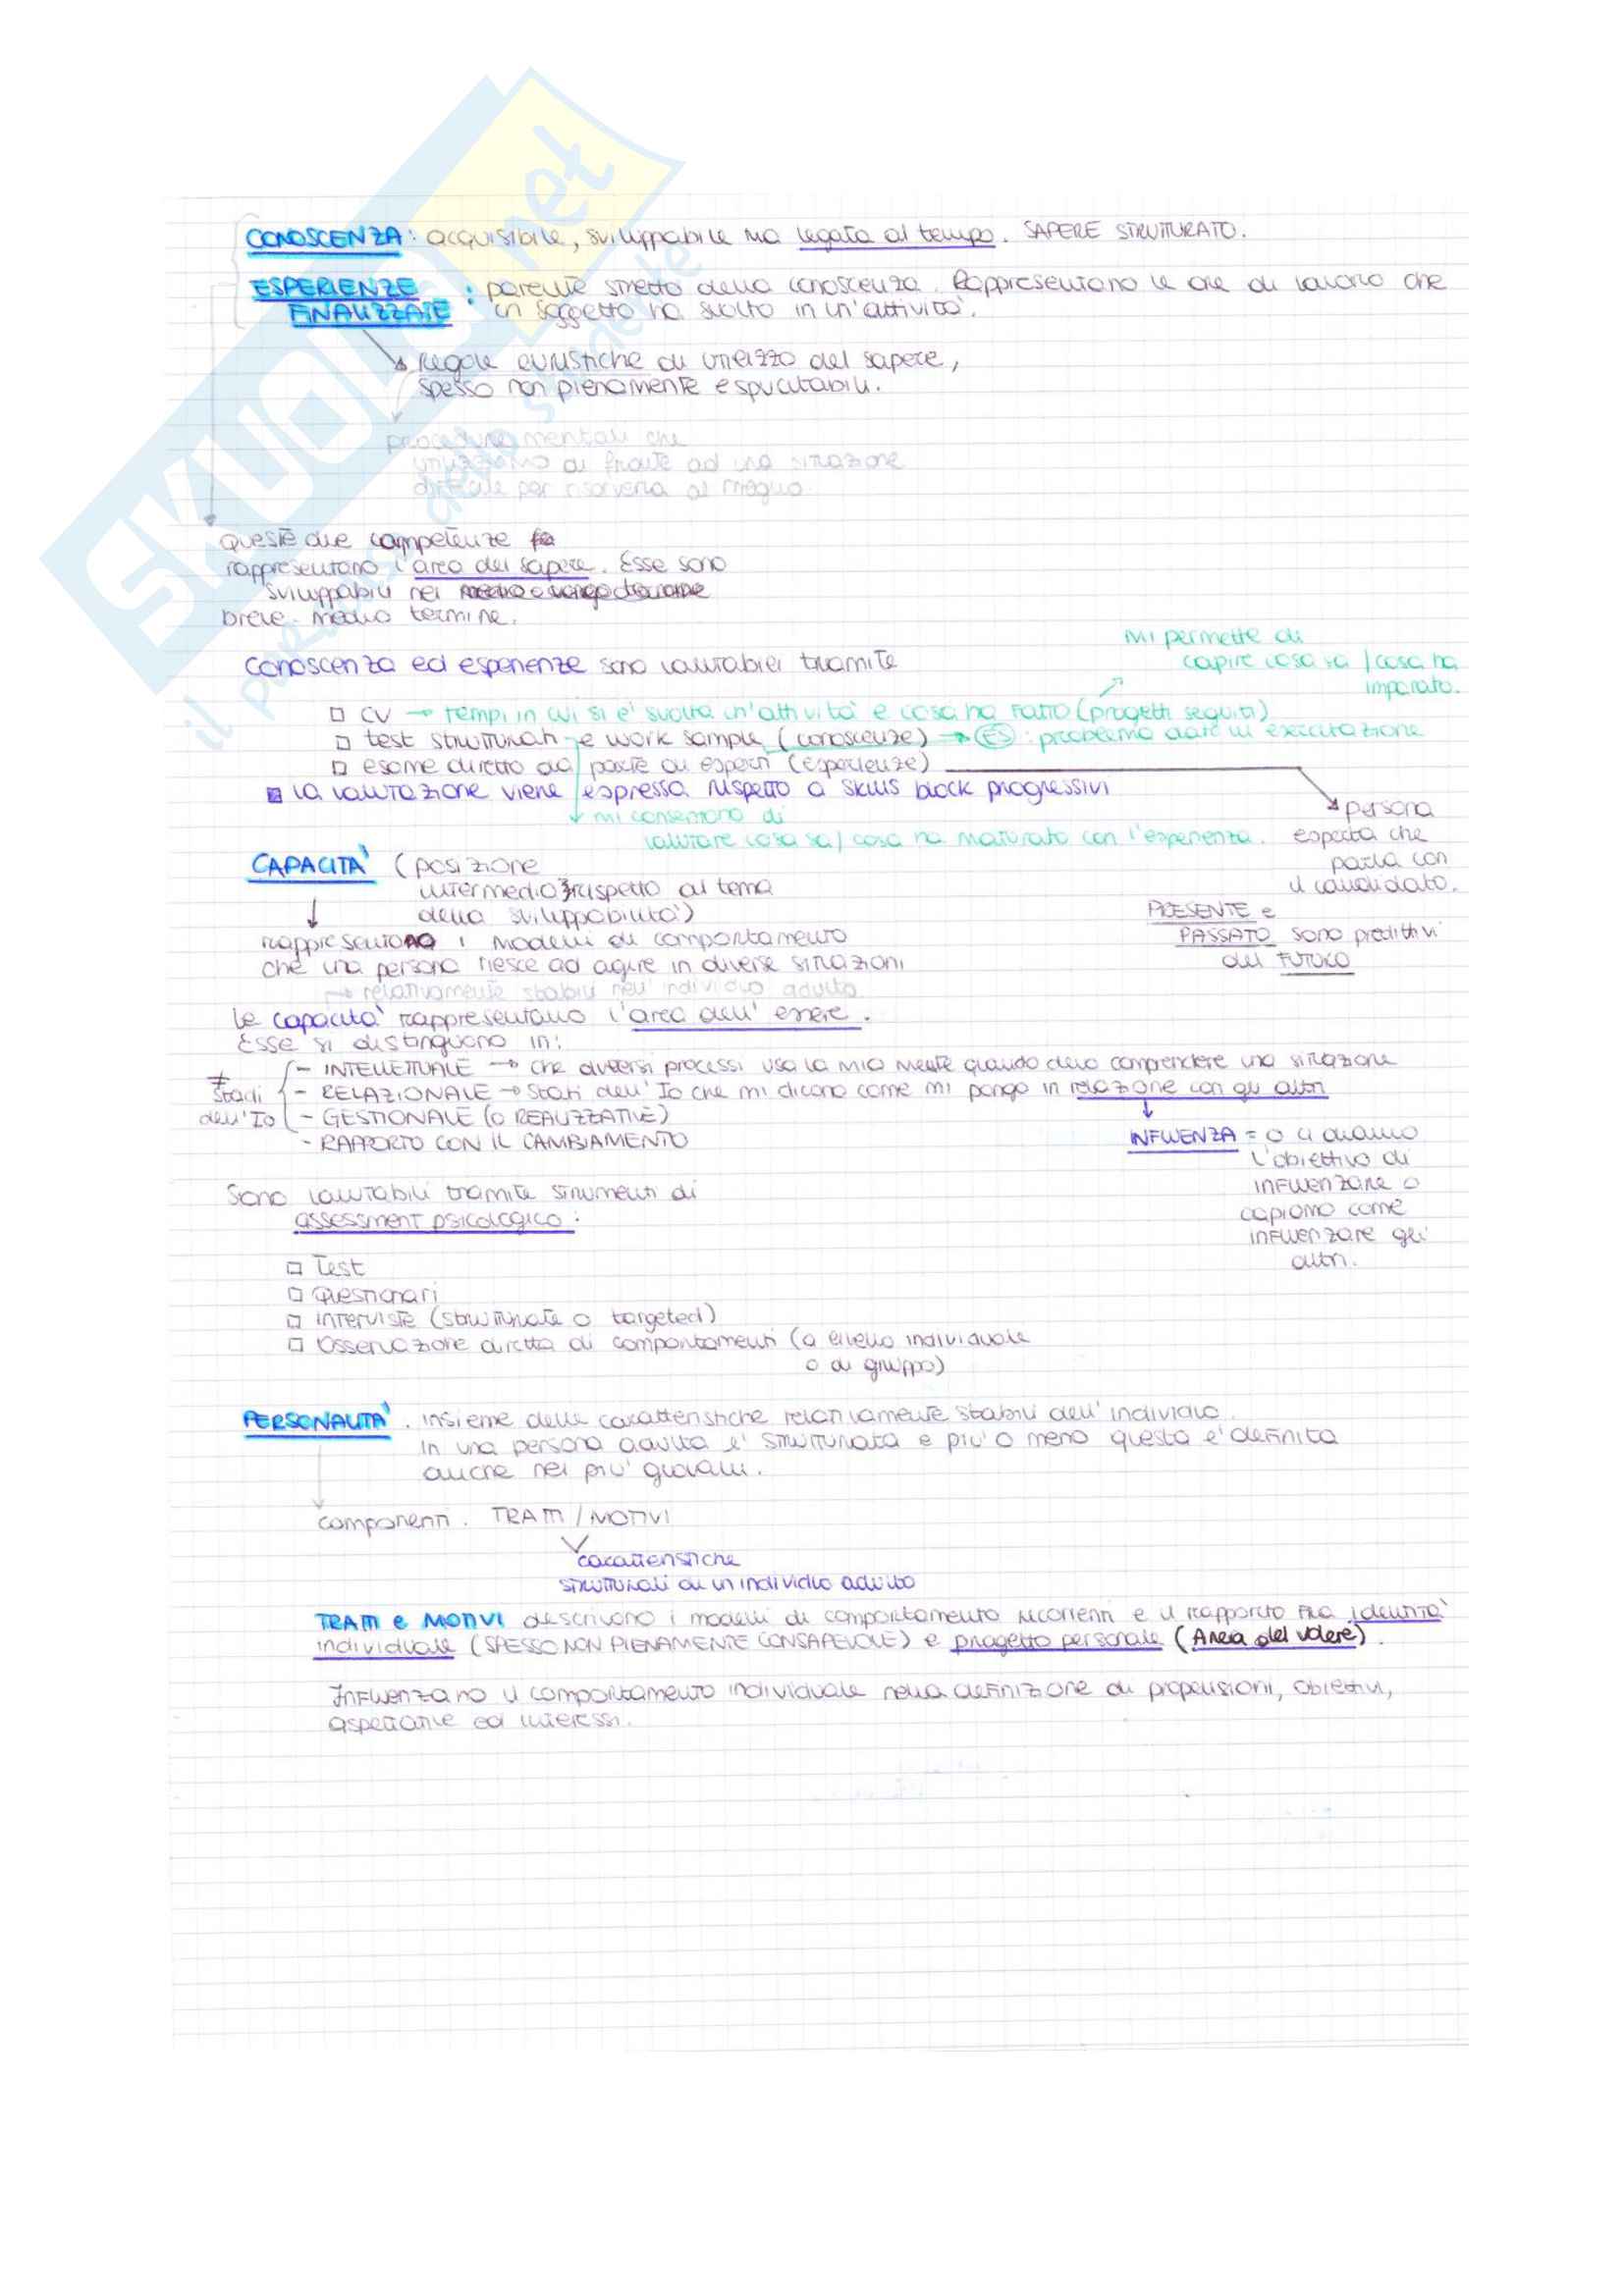 SKUOLA.net
il paradiso dello studente
CONOSCENZA: acquisibile, sviluppabile ma legata al tempo. SAPERE STRUTTURATO.
ESPERIENZE : parente stretto della conoscenza. Rappresentano le ore di lavoro che
FINALIZZATE un soggetto ha svolto in un'attività.
Regole euristiche di utilizzo del sapere,
spesso non pienamente esplicitabili.
procedure mentali che
utilizziamo di fronte ad una situazione
difficile per risolverla al meglio.
queste due competenze
rappresentano l'area del sapere. Esse sono
sviluppabili nel
breve-medio termine.
Conoscenza ed esperienze sono valutabili tramite
Mi permette di
capire cosa sa / cosa ha
imparato.
□ CV → tempi in cui si e' svolta un'attività e cosa ha fatto (progetti seguiti)
□ test strutturati e work sample (conoscenze) → ES: problema dato in esercitazione
□ esame diretto da parte di esperti (esperienze)
La valutazione viene espressa rispetto a skills block progressivi
mi consentono di
valutare cosa sa / cosa ha maturato con l'esperienza.
persona
esperta che
parla con
il candidato.
CAPACITA' (posizione
intermedia rispetto al tema
della sviluppabilità)
PRESENTE e
PASSATO sono predittivi
del FUTURO
↓
rappresentano i modelli di comportamento
che una persona riesce ad agire in diverse situazioni
→ relativamente stabili nell'individuo adulto
Le capacità rappresentano l'area dell'essere.
Esse si distinguono in:
≠ stadi dell'Io
- INTELLETTUALE → che diversi processi usa la mia mente quando devo comprendere una situazione
- RELAZIONALE → stati dell'Io che mi dicono come mi pongo in relazione con gli altri
- GESTIONALE (o REALIZZATIVE)
- RAPPORTO CON IL CAMBIAMENTO
INFLUENZA = o ci diamo
l'obiettivo di
influenzare o
capiamo come
influenzare gli
altri.
Sono valutabili tramite strumenti di
assessment psicologico:
□ Test
□ Questionari
□ Interviste (strutturate o targeted)
□ Osservazione diretta di comportamenti (a livello individuale
o di gruppo)
PERSONALITA'. Insieme delle caratteristiche relativamente stabili dell'individuo.
In una persona adulta e' strutturata e piu' o meno questa e' definita
anche nei piu' giovani.
componenti. TRATTI / MOTIVI
caratteristiche
strutturali di un individuo adulto
TRATTI e MOTIVI descrivono i modelli di comportamento ricorrenti e il rapporto fra identità
individuale (SPESSO NON PIENAMENTE CONSAPEVOLE) e progetto personale (Area del volere).
Influenzano il comportamento individuale nella definizione di propensioni, obiettivi,
aspettative ed interessi.